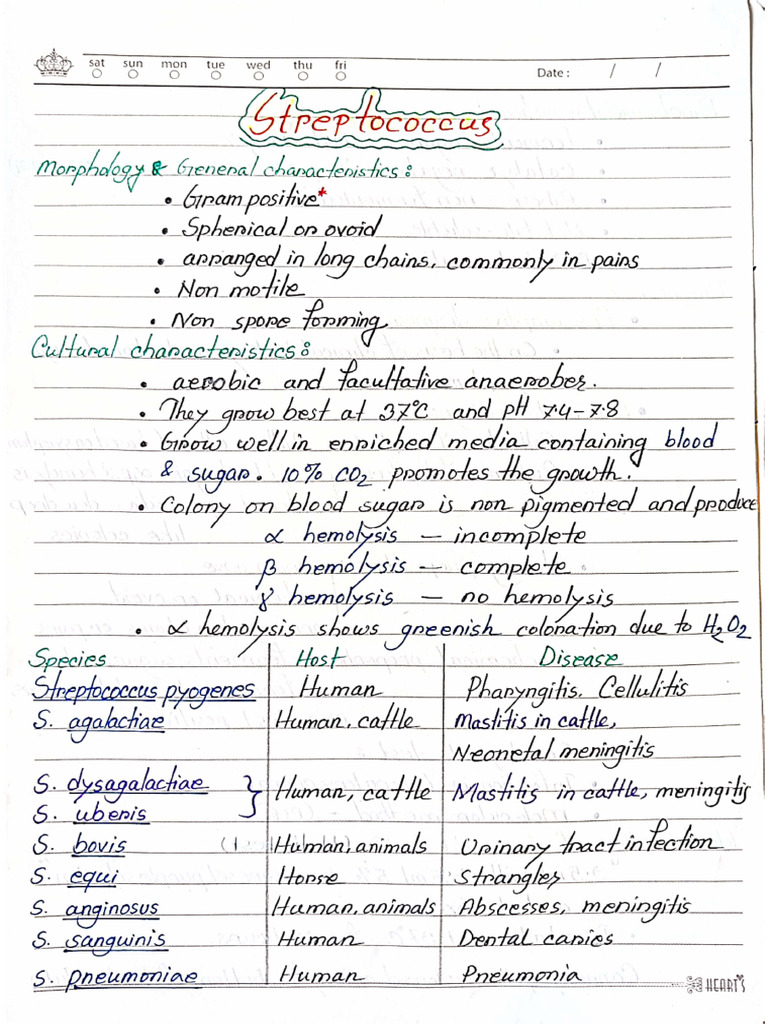 sat sun mon tue wed thu fri Date : / /
Streptococcus
Morphology & General characteristics :
• Gram positive*
• Spherical or ovoid
• arranged in long chains, commonly in pairs
• Non motile
• Non spore forming
Cultural characteristics :
• aerobic and facultative anaerobes.
• They grow best at 37°C and pH 7.4-7.8
• Grow well in enriched media containing blood
& sugar. 10% CO₂ promotes the growth.
• Colony on blood sugar is non pigmented and produce
α hemolysis – incomplete
β hemolysis – complete
γ hemolysis – no hemolysis
• α hemolysis shows greenish coloration due to H₂O₂
Species Host Disease
Streptococcus pyogenes Human Pharyngitis. Cellulitis
S. agalactiae Human, cattle Mastitis in cattle,
Neonetal meningitis
S. dysagalactiae } Human, cattle Mastitis in cattle, meningitis
S. uberis
S. bovis Human, animals Urinary tract infection
S. equi Horse Strangles
S. anginosus Human, animals Abscesses, meningitis
S. sanguinis Human Dental caries
S. pneumoniae Human Pneumonia
HEART'S